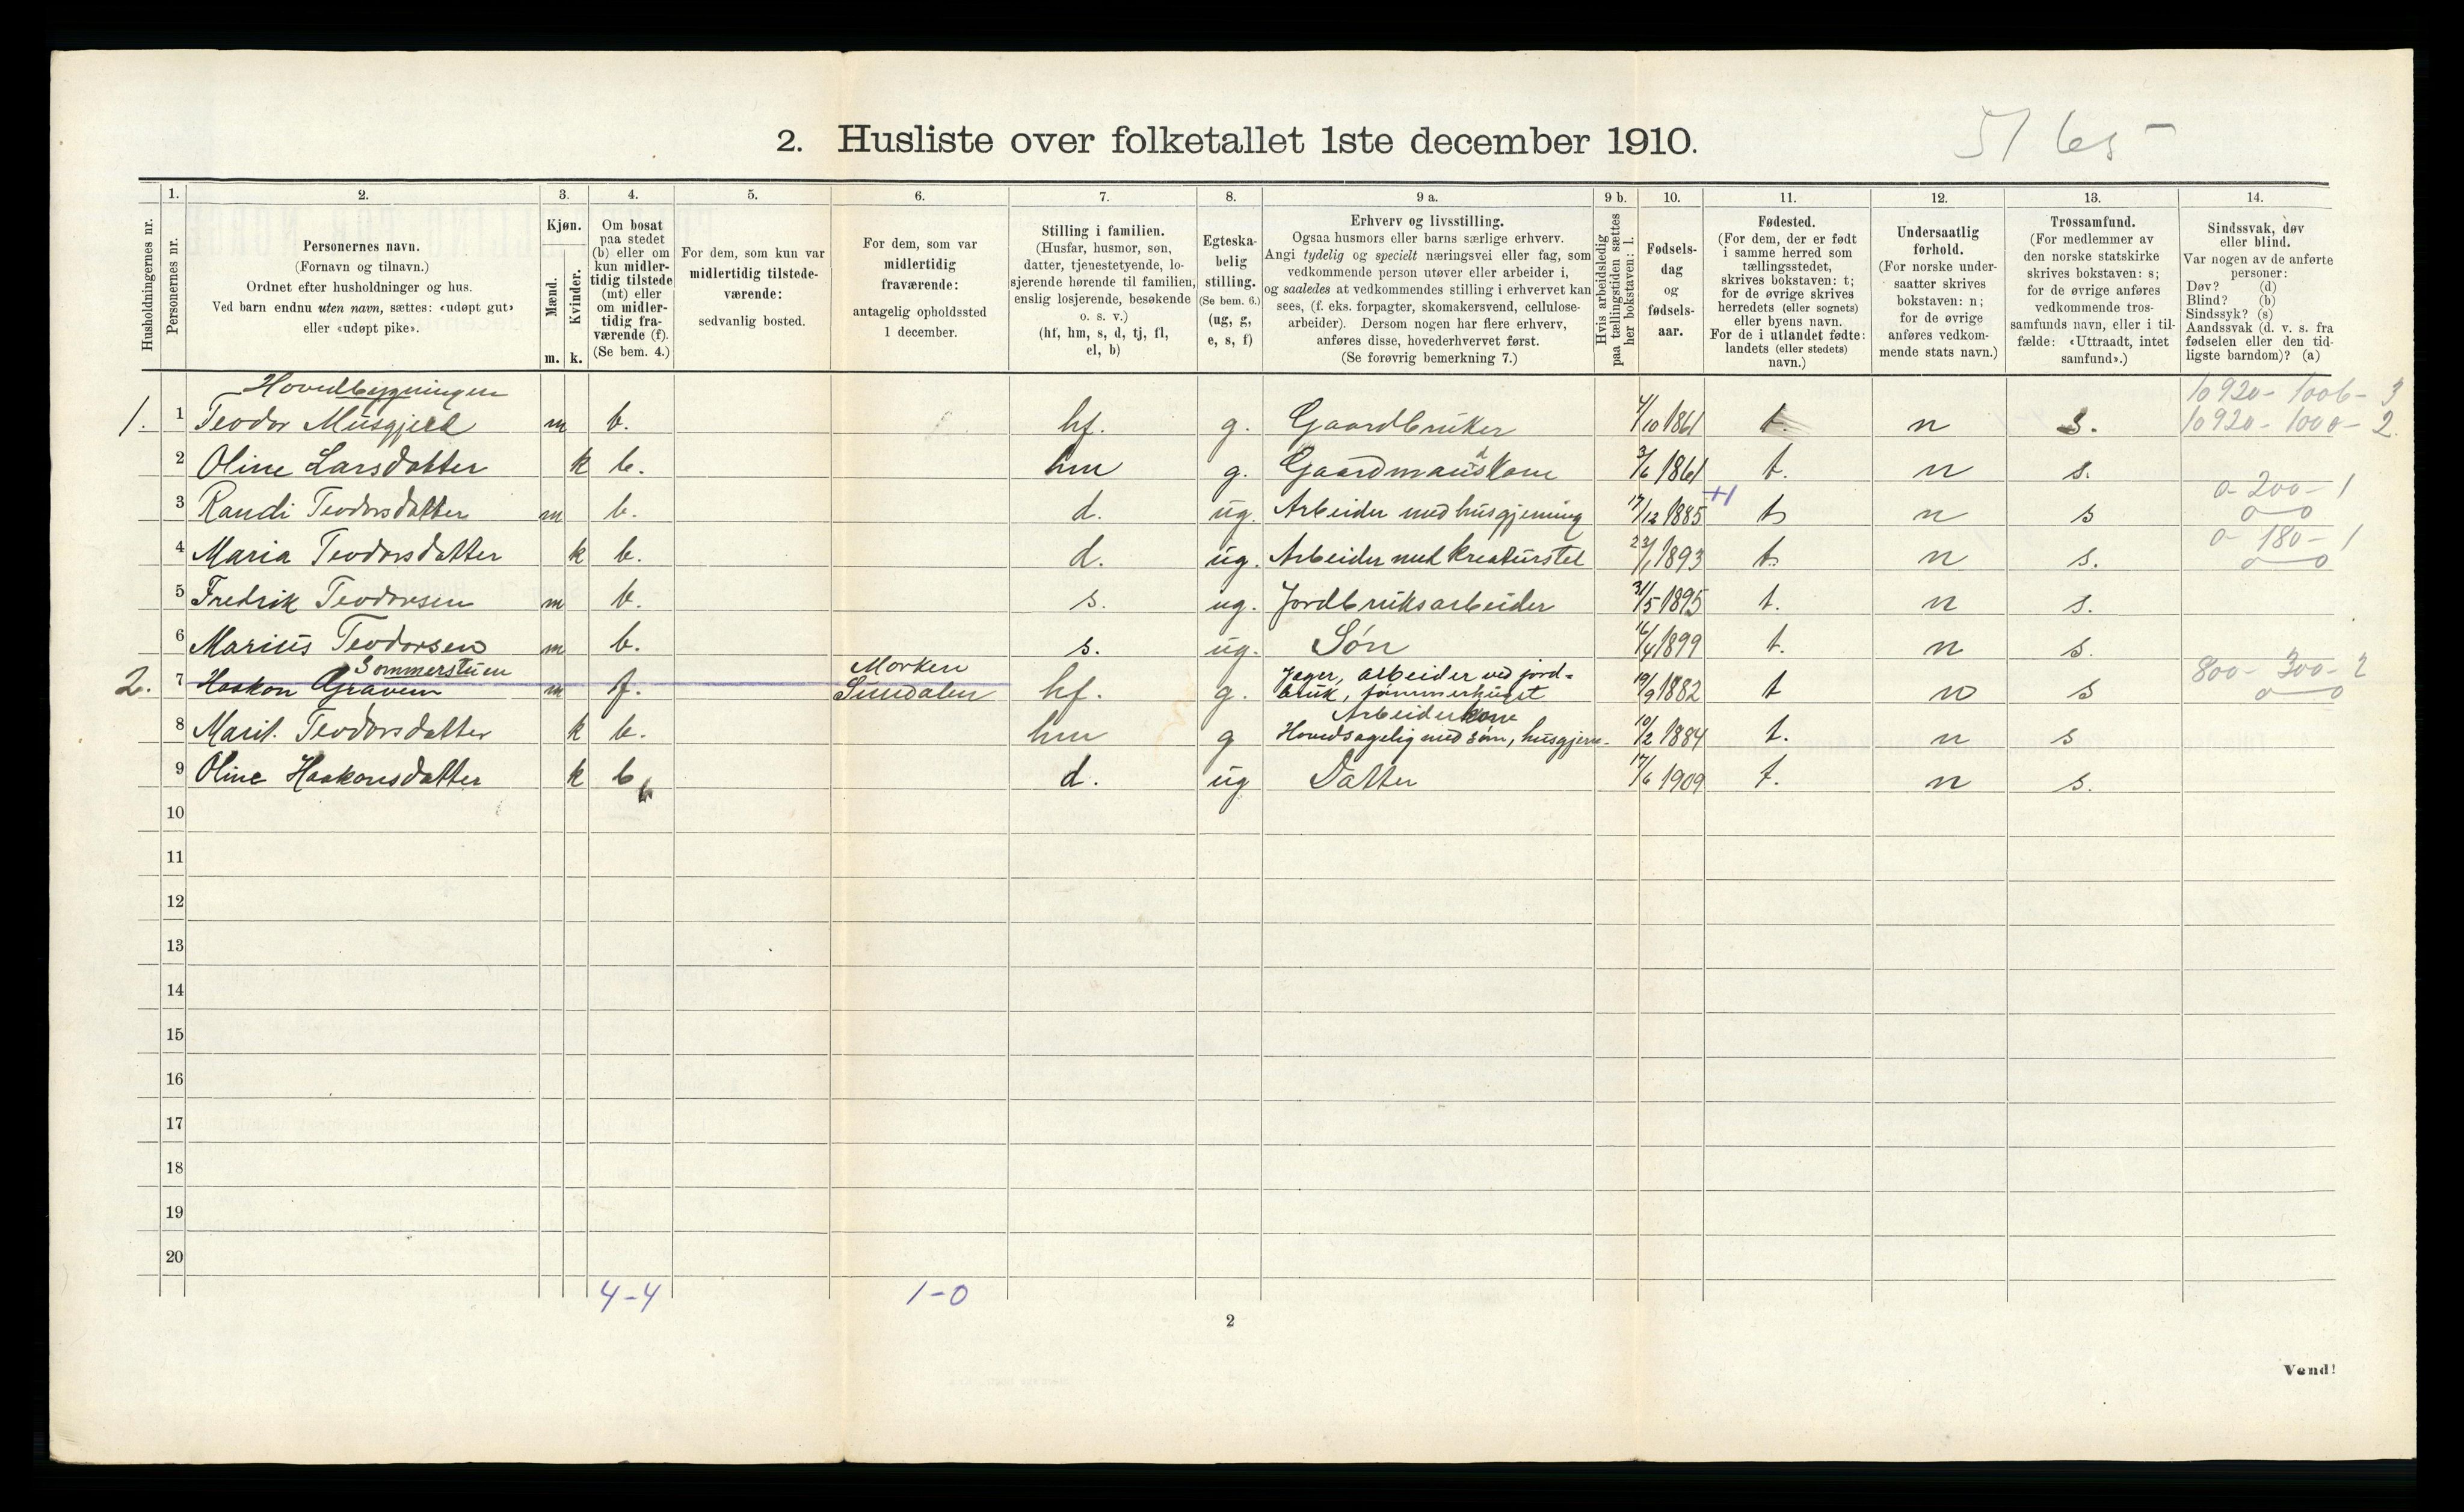 2. Husliste over folketallet 1ste december 1910.
5/ 65 -
1. 2. 3. 4. 5. 6. 7. 8. 9 a. 9 b. 10. 11. 12. 13. 14.
Husholdningernes nr.
Personernes nr.
Personernes navn.
(Fornavn og tilnavn.)
Ordnet efter husholdninger og hus.
Ved barn endnu uten navn, sættes: «udøpt gut»
eller «udøpt pike».
Kjøn.
Mænd.
Kvinder.
m. k.
Om bosat
paa stedet
(b) eller om
kun midler-
tidig tilstede
(mt) eller
om midler-
tidig fra-
værende (f).
(Se bem. 4.)
For dem, som kun var
midlertidig tilstede-
værende:
sedvanlig bosted.
For dem, som var
midlertidig
fraværende:
antagelig opholdssted
1 december.
Stilling i familien.
(Husfar, husmor, søn,
datter, tjenestetyende, lo-
sjerende hørende til familien,
enslig losjerende, besøkende
o. s. v.)
(hf, hm, s, d, tj, fl,
el, b)
Egteska-
belig
stilling.
(Se bem. 6.)
(ug, g,
e, s, f)
Erhverv og livsstilling.
Ogsaa husmors eller barns særlige erhverv.
Angi tydelig og specielt næringsvei eller fag, som
vedkommende person utøver eller arbeider i,
og saaledes at vedkommendes stilling i erhvervet kan
sees, (f. eks. forpagter, skomakersvend, cellulose-
arbeider). Dersom nogen har flere erhverv,
anføres disse, hovederhvervet først.
(Se forøvrig bemerkning 7.)
Hvis arbeidsledig
paa tællingstiden sættes
her bokstaven: l.
Fødsels-
dag
og
fødsels-
aar.
Fødested.
(For dem, der er født
i samme herred som
tællingsstedet,
skrives bokstaven: t;
for de øvrige skrives
herredets (eller sognets)
eller byens navn.
For de i utlandet fødte:
landets (eller stedets)
navn.)
Undersaatlig
forhold.
(For norske under-
saatter skrives
bokstaven: n;
for de øvrige
anføres vedkom-
mende stats navn.)
Trossamfund.
(For medlemmer av
den norske statskirke
skrives bokstaven: s;
for de øvrige anføres
vedkommende tros-
samfunds navn, eller i til-
fælde: «Uttraadt, intet
samfund».)
Sindssvak, døv
eller blind.
Var nogen av de anførte
personer:
Døv? (d)
Blind? (b)
Sindssyk? (s)
Aandssvak (d. v. s. fra
fødselen eller den tid-
ligste barndom)? (a)
Hovedbygningen
10920 - 1006 - 3
1. 1 Teodor Musgjerd m b. hf. g. Gaardbruker 4/10 1861 t. n s. 10920 - 1000 - 2
2 Oline Larsdatter k b. hm g. Gaardmandskone 3/6 1861 t. n s.
0 - 200 - 1
3 Randi Teodorsdatter m b. d. ug. Arbeider med husgjerning 17/12 1885 +1 t n s 0-0
0 - 180 - 1
4 Maria Teodorsdatter k b. d. ug. Arbeider med kreaturstel 23/1 1893 t. n s. 0-0
5 Fredrik Teodorsen m b. s. ug. Jordbruksarbeider 31/5 1895 t. n s.
6 Marius Teodorsen m b. s. ug. Søn 16/4 1899 t. n s.
Sommerstuen Morken Jager, arbeider ved jord- 800 - 300 - 2
2. 7 Haakon Gravem m f. Sundalen hf. g. bruk, tømmerhugst 19/9 1882 t n s 0-0
Arbeiderkone
8 Marit Teodorsdatter k b. hm g Hovedsagelig med søm, husgjern. 10/2 1884 t. n s
9 Oline Haakonsdatter k b d. ug Datter 17/6 1909 t. n s.
10
11
12
13
14
15
16
17
18
19
20
4-4 1-0
2
Vend!